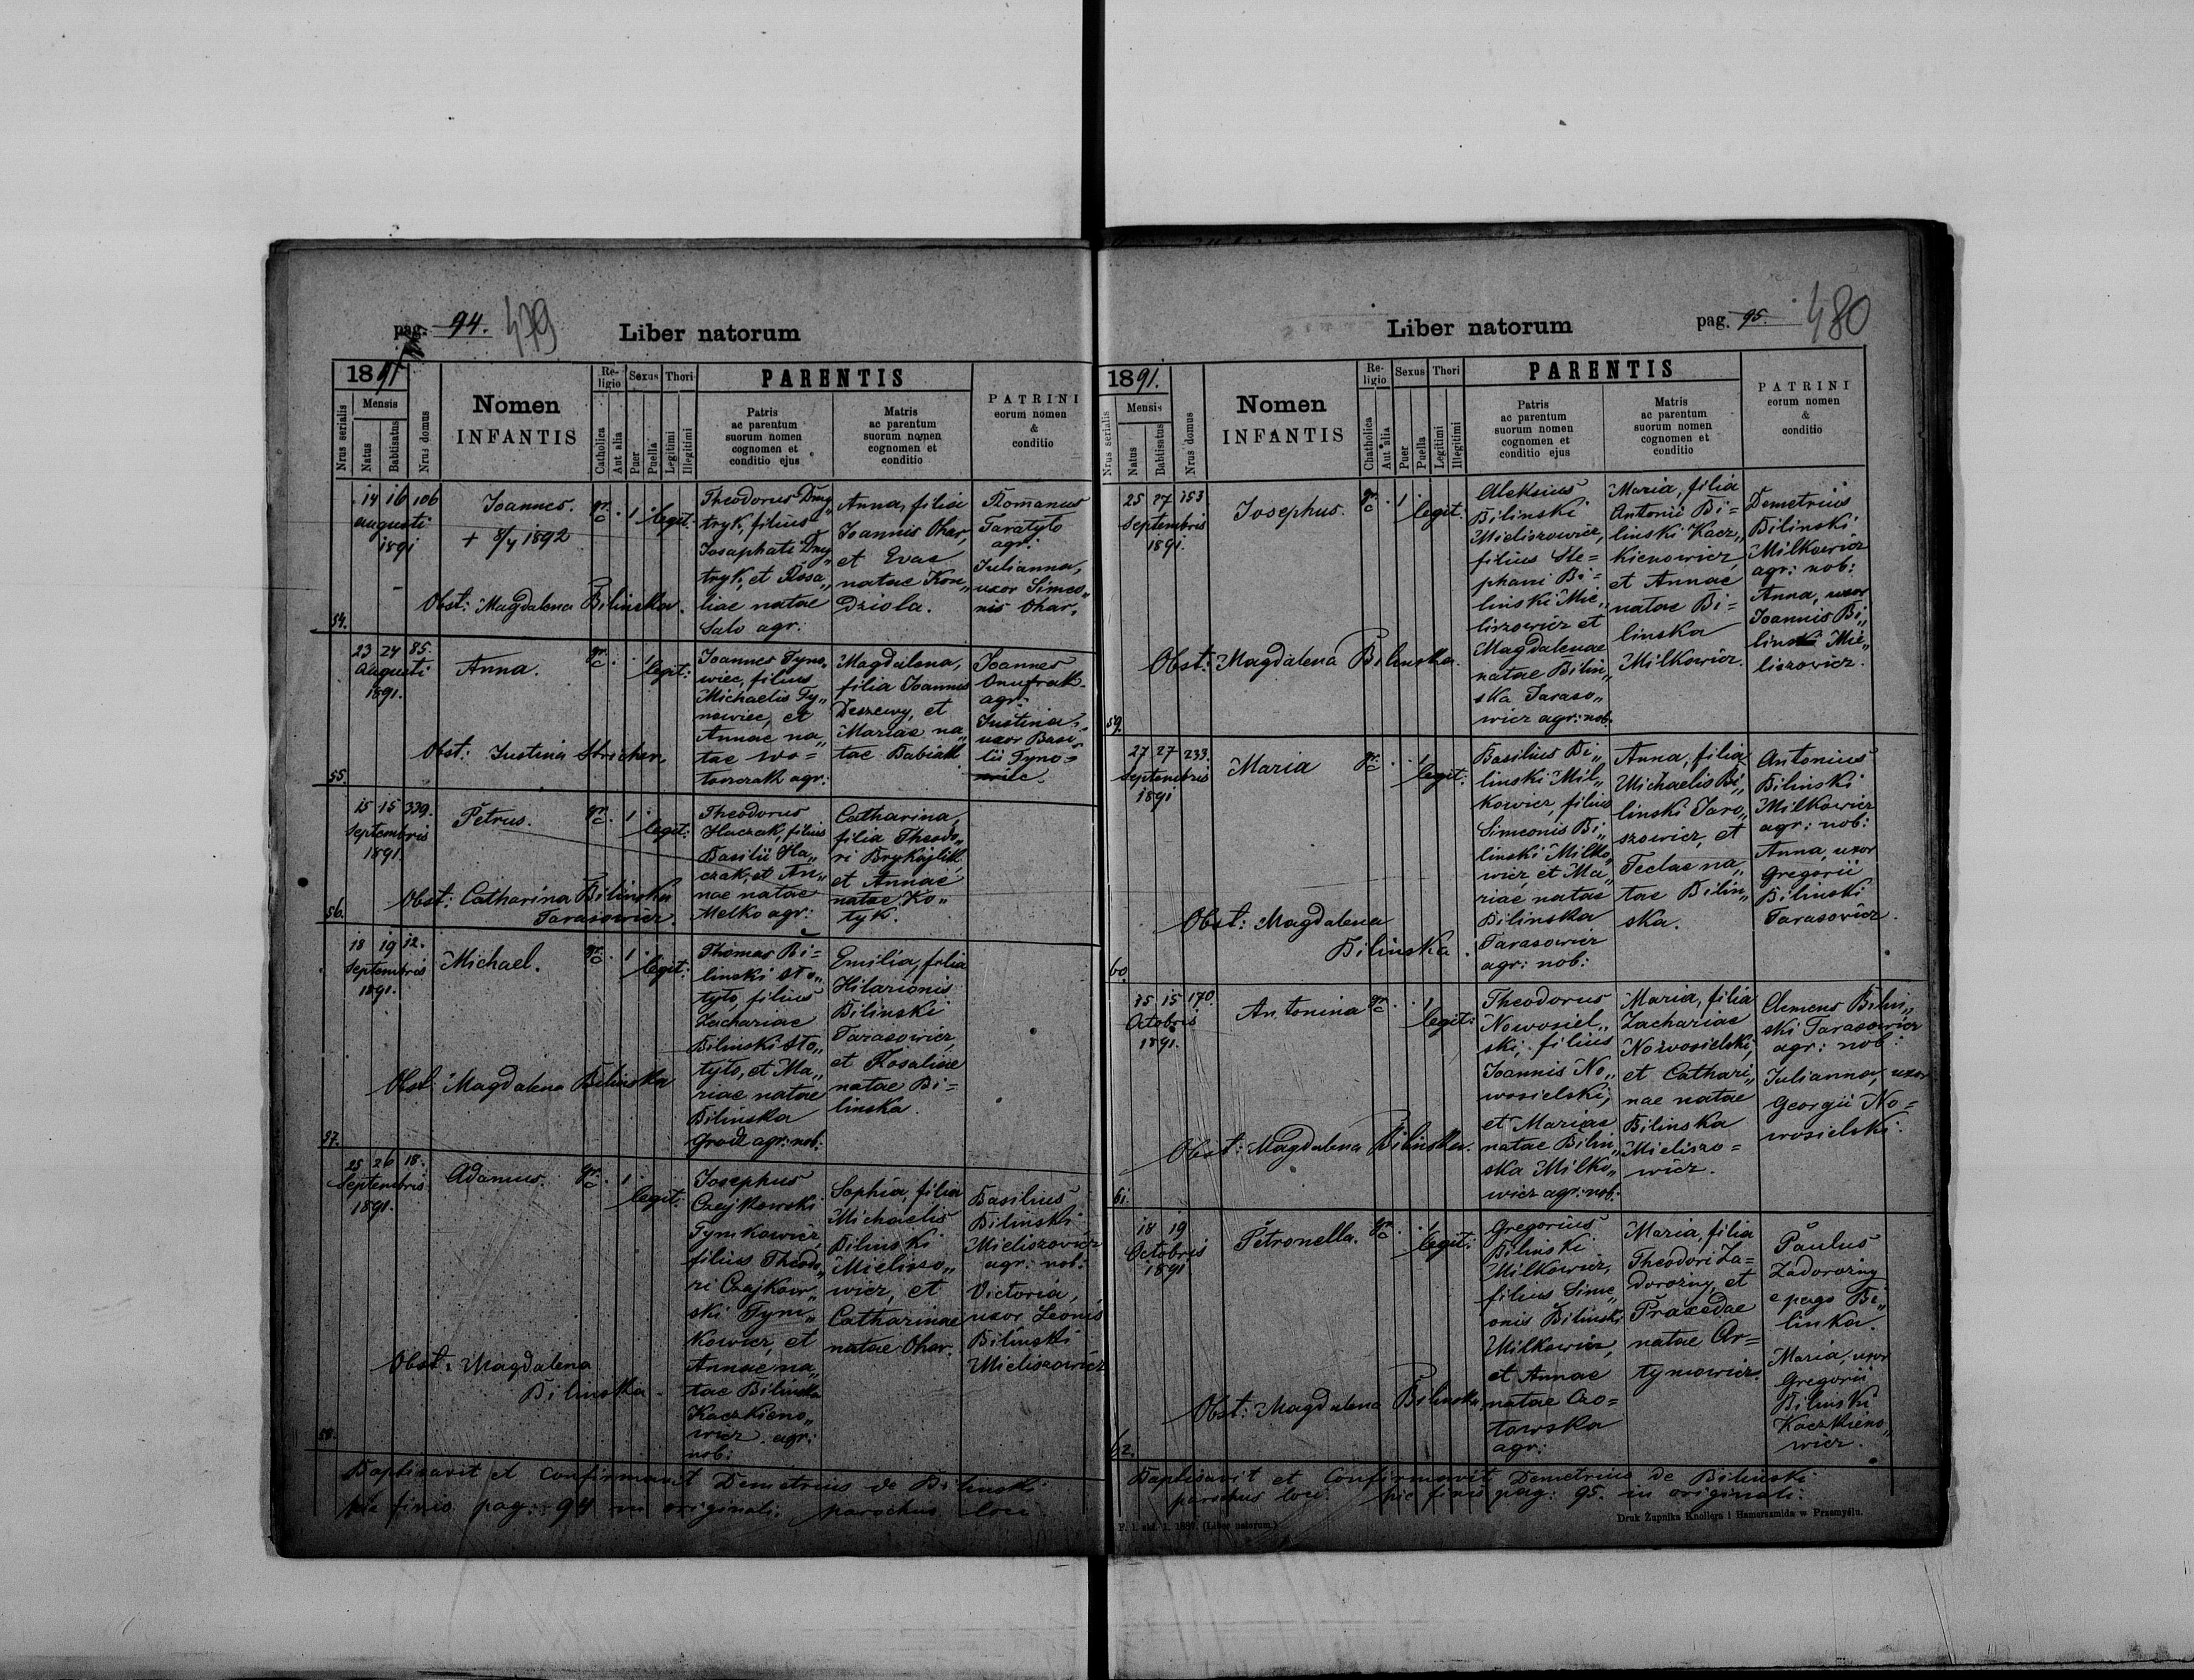 pag. 94. 479
Liber natorum
1891
Nrus serialis
Mensis
Natus
Babtisatus
Nrus domus
Nomen
INFANTIS
Religio
Catholica
Aut alia
Sexus
Puer
Puella
Thori
Legitimi
Illegitimi
PARENTIS
Patris
ac parentum
suorum nomen
cognomen et
conditio ejus
Matris
ac parentum
suorum nomen
cognomen et
conditio
PATRINI
eorum nomen
&
conditio
54.
14 16 106
augusti
1891
Joannes.
+ 8/4 1892
gr. c. 1 legit:
Obst: Magdalena Bilinska.
Theodorus Dmy„
tryk, filius
Josaphati Dmy„
tryk, et Rosa„
liae natae
Salo agr:
Anna, filia
Joannis Ohar,
et Evae
natae Kon„
dziola.
Romanus
Taratyto
agr:
Julianna,
uxor Simeo„
nis Ohar,
55.
23 24 85.
Augusti
1891.
Anna.
gr. c. 1 legit:
Obst: Justina
Joannes Tyno„
wiec, filius
Michaelis Ty„
nowiec, et
Annae na„
tae Wo=
toszczak agr:
Magdalena,
filia Joannis
Deszewy, et
Mariae na„
tae Babiak
Joannes
Onufrak
agr:
Justina
uxor Basi„
lii Tyno=
wiec.
56.
15 15 339.
Septembris
1891.
Petrus.
gr. c. 1 legit:
Obst: Catharina Bilinska
Tarasowicz.
Theodorus
Haczak, filius
Basilii Ha„
czak, et An„
nae natae
Melko agr:
Catharina,
filia Theodo„
ri Brykajlik,
et Annae
natae Ko„
tyk.
57.
18 19 12.
Septembris
1891.
Michael.
gr. c. 1 legit:
Obst: Magdalena Bilinska
Thomas Bi=
linski Sto„
tyto, filius
Zachariae
Bilinski Sto„
tyto, et Ma„
riae natae
Bilinska
Gradz agr: nob:
Emilia, filia
Hilarionis
Bilinski
Tarasowicz,
et Rosaliae
natae Bi=
linska.
58.
25 26 18.
Septembris
1891.
Adamus.
gr. c. 1 legit:
Obst: Magdalena
Bilinska.
Josephus
Czajkowski
Tymkowicz,
filius Theodo„
ri Czajkow„
ski Tym„
kowicz, et
Annae na„
tae Bilinska
Kaczkieno„
wicz agr:
nob:
Sophia, filia
Michaelis
Bilinski
Mieliszo„
wicz, et
Catharinae
natae Ohar.
Basilius
Bilinski
Mieliszowicz
agr: nob:
Victoria,
uxor Leonis
Bilinski
Mieliszowicz
Baptisavit et confirmavit Demetrius de Bilinski
hic finis pag: 94 in originali: parochus loci
Liber natorum
pag. 95. 480
1891.
Nrus serialis
Mensis
Natus
Babtisatus
Nrus domus
Nomen
INFANTIS
Religio
Chatholica
Aut alia
Sexus
Puer
Puella
Thori
Legitimi
Illegitimi
PARENTIS
Patris
ac parentum
suorum nomen
cognomen et
conditio ejus
Matris
ac parentum
suorum nomen
cognomen et
conditio
PATRINI
eorum nomen
&
conditio
59.
25 27 153
Septembris
1891.
Josephus.
gr. c. 1 legit:
Obst: Magdalena Bilinska.
Aleksius
Bilinski
Mieliszowicz,
filius Ste=
phani Bi=
linski Mie„
liszowicz et
Magdalenae
natae Bilin„
ska Taraso„
wicz agr: nob:
Maria, filia
Antonii Bi=
linski Kacz„
kienowicz,
et Annae
natae Bi=
linska
Milkowicz.
Demetrius
Bilinski
Milkowicz
agr: nob:
Anna, uxor
Joannis Bi„
linski Mie„
liszowicz.
60.
27 27 233.
Septembris
1891
Maria
gr. c. 1 legit:
Obst: Magdalena
Bilinska.
Basilius Bi„
linski Mil„
kowicz, filius
Simeonis Bi„
linski Milko„
wicz, et Ma„
riae natae
Bilinska
Tarasowicz
agr: nob:
Anna, filia
Michaelis Bi„
linski Jaro„
szowicz, et
Teclae na„
tae Bilin„
ska.
Antonius
Bilinski
Milkowicz
agr: nob:
Anna, uxor
Gregorii
Bilinski
Tarasowicz.
61.
15 15 170.
Octobris
1891.
Antonina
gr. c. 1 legit:
Obst: Magdalena Bilinska.
Theodorus
Nowosiel„
ski, filius
Joannis No„
wosielski,
et Mariae
natae Bilin„
ska Milko„
wicz agr: nob:
Maria, filia
Zachariae
Nowosielski,
et Cathari„
nae natae
Bilinska
Mieliszo=
wicz.
Clemens Bilin„
ski Tarasowicz
agr: nob:
Julianna, uxor
Georgii No=
wosielski.
62.
18 19
Octobris
1891
Petronella.
gr. c. 1 legit:
Obst: Magdalena Bilinska,
Gregorius
Bilinski
Milkowicz,
filius Sime„
onis Bilinski
Milkowicz,
et Annae
natae Czo=
towska
agr:
Maria, filia
Theodori Za=
dorozny, et
Praxedae
natae Ar=
tymowicz.
Paulus
Zadorozny
e pago Bi„
linka.
Maria, uxor
Gregorii
Bilinski
Kaczkieno„
wicz.
Baptisavit et Confirmavit Demetrius de Bilinski
parochus loci. hic finis pag: 95. in originali:
F. 1. skł. 1. 1887. (Liber natorum.)
Druk Żupnika Knollera i Hamerszmida w Przemyślu.